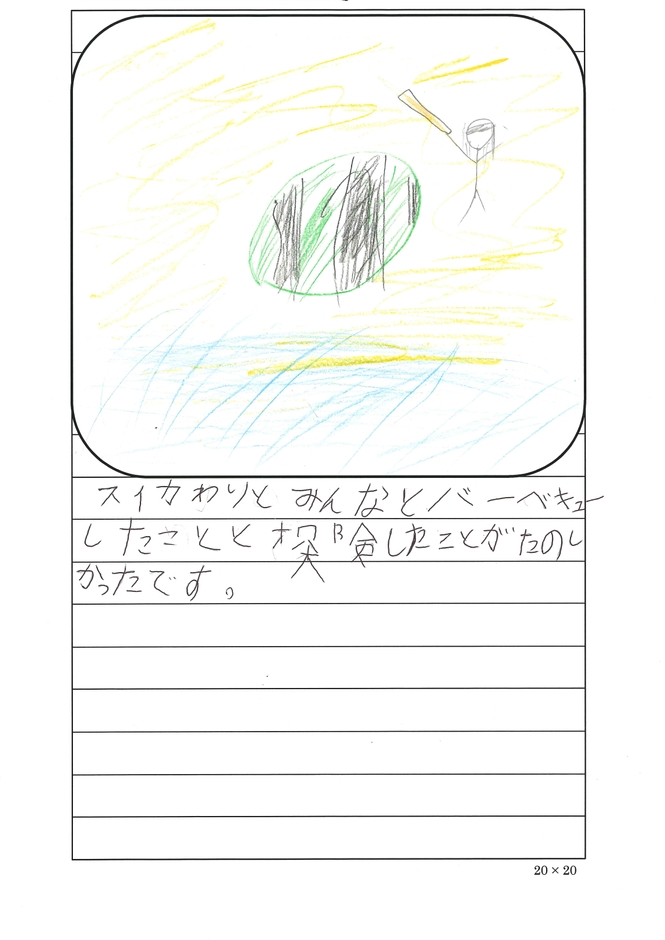 スイカわりとみんなとバーベキュー
したことと探険したことがたのし
かったです。
20×20